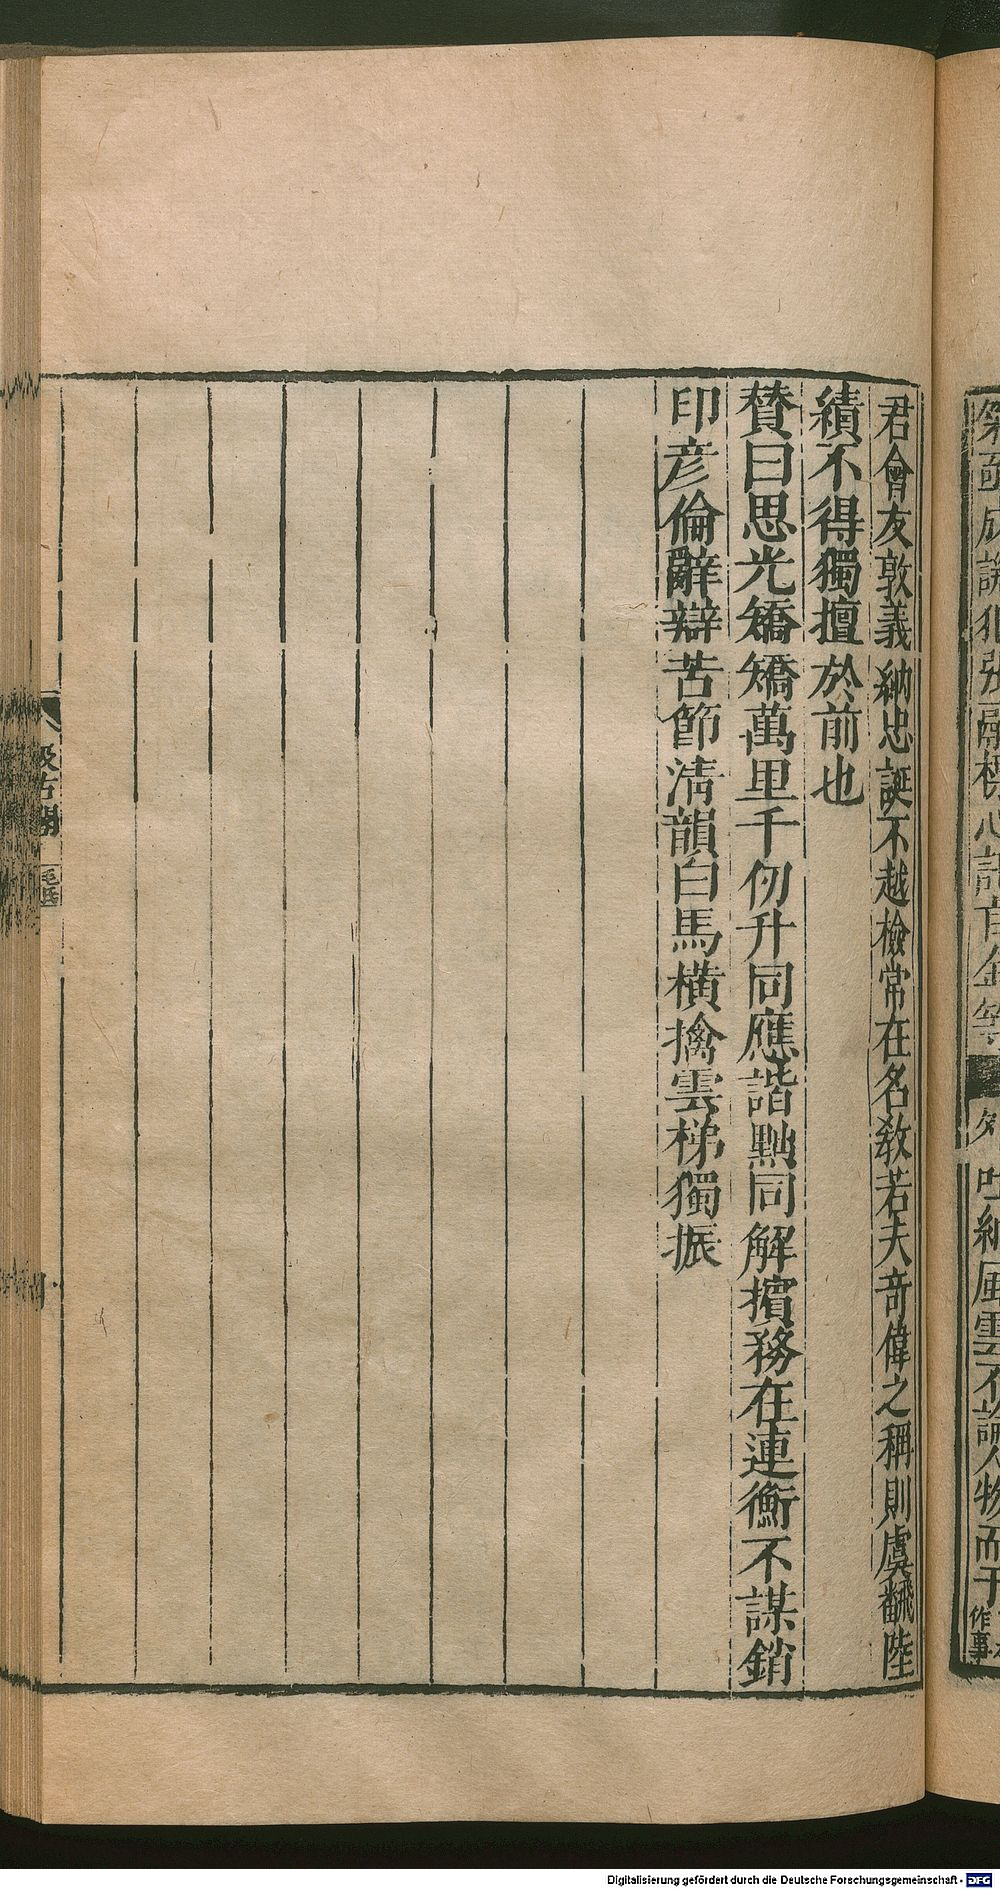 君會友敦義納忠誕不越檢常在名教若夫奇偉之稱則虞飜陸
績不得獨擅於前也
贊曰思光矯矯萬里千仞升同應諧黜同解擯務在連衡不謀銷
印彥倫辭辯苦節清韻白馬橫擒雲梯獨振
汲古閣
毛氏
吐納風雲不論人物而干
作事
Digitalisierung gefördert durch die Deutsche Forschungsgemeinschaft - DFG